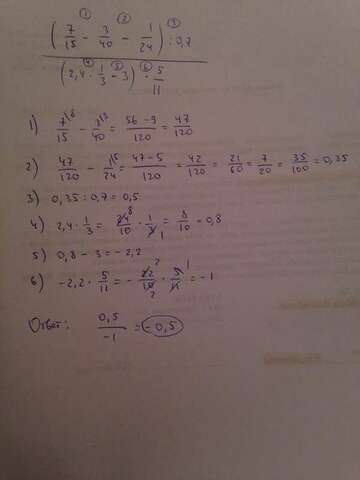 ① ② ③
(7/15 - 3/40 - 1/24) : 0,7
④ ⑤ ⑥
(2,4 · 1/3 - 3) · 5/11
1) 7/15 \8 - 3/40 \3 = 56 - 9/120 = 47/120
2) 47/120 - 1/24 \5 = 47 - 5/120 = 42/120 = 21/60 = 7/20 = 35/100 = 0,35
3) 0,35 : 0,7 = 0,5
4) 2,4 · 1/3 = 24 8/10 · 1/3 1 = 8/10 = 0,8
5) 0,8 - 3 = - 2,2
6) -2,2 · 5/11 = - 22 2/10 2 · 5 1/11 = -1
Ответ: 0,5/-1 = -0,5